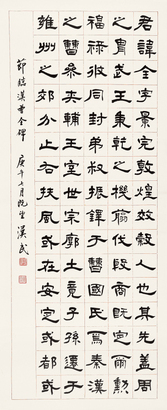 君諱全字景完敦煌效穀人也其先蓋周
之胄武王秉乾之機翦伐殷商既定爾勳
福祿攸同封弟叔振鐸于曹國氏焉秦漢
之曹參夾輔王室世宗廓土竟子孫遷于
雍州之郊分止右扶風或在安定或都或
節臨漢曹全碑 庚午七月 漢武